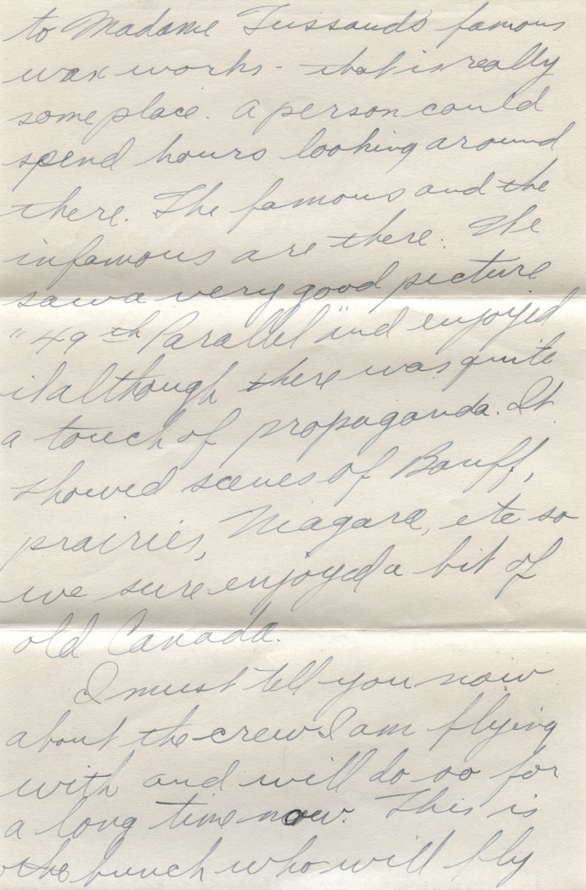 to Madame Tussauds famous
wax works - that is really
some place. A person could
spend hours looking around
there. The famous and the
infamous are there. We
saw a very good picture
"49th Parallel" and enjoyed
it although there was quite
a touch of propaganda. It
showed scenes of Banff,
prairies, Niagara, etc so
we sure enjoyed a bit of
old Canada.
I must tell you now
about the crew I am flying
with and will do so for
a long time now. This is
the bunch who will fly